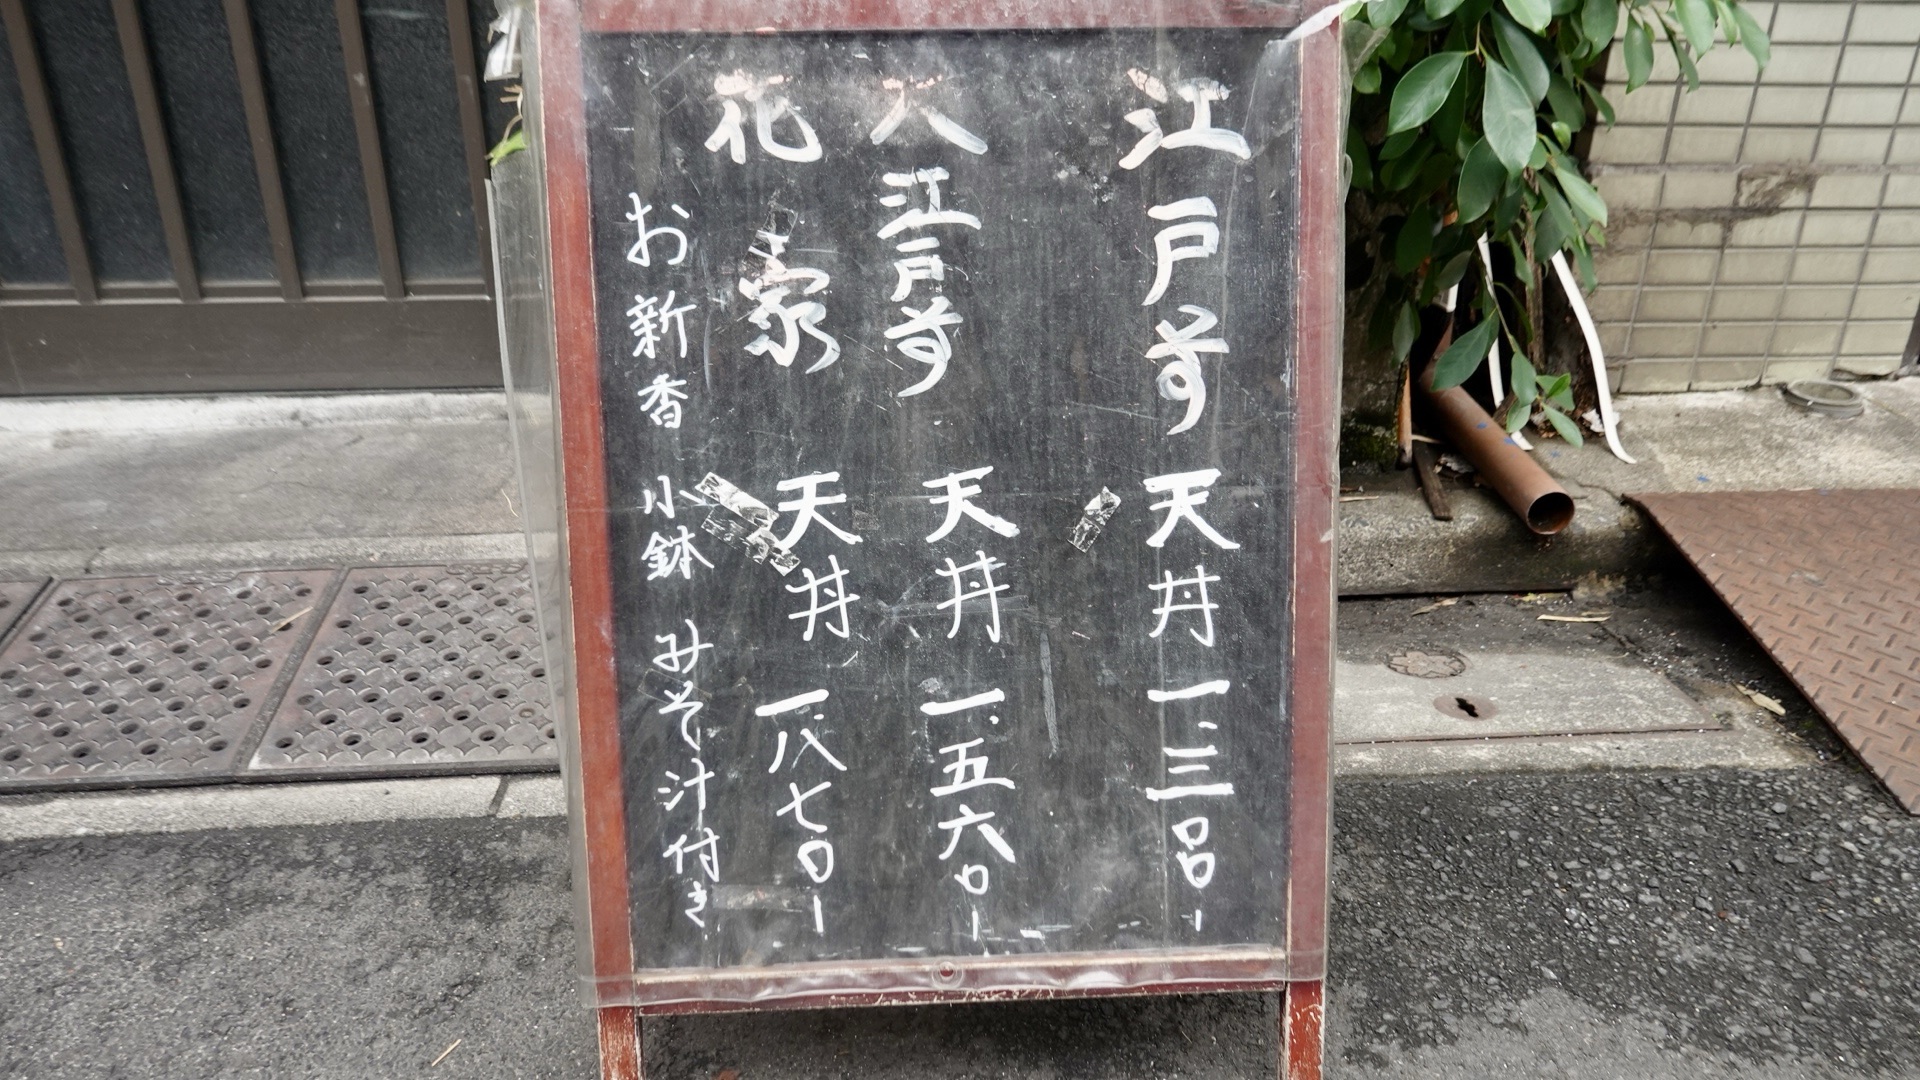 江戸前 天丼 一、三三〇-
大江戸前 天丼 一、五六〇-
花家 天丼 一、八七〇-
お新香 小鉢 みそ汁付き